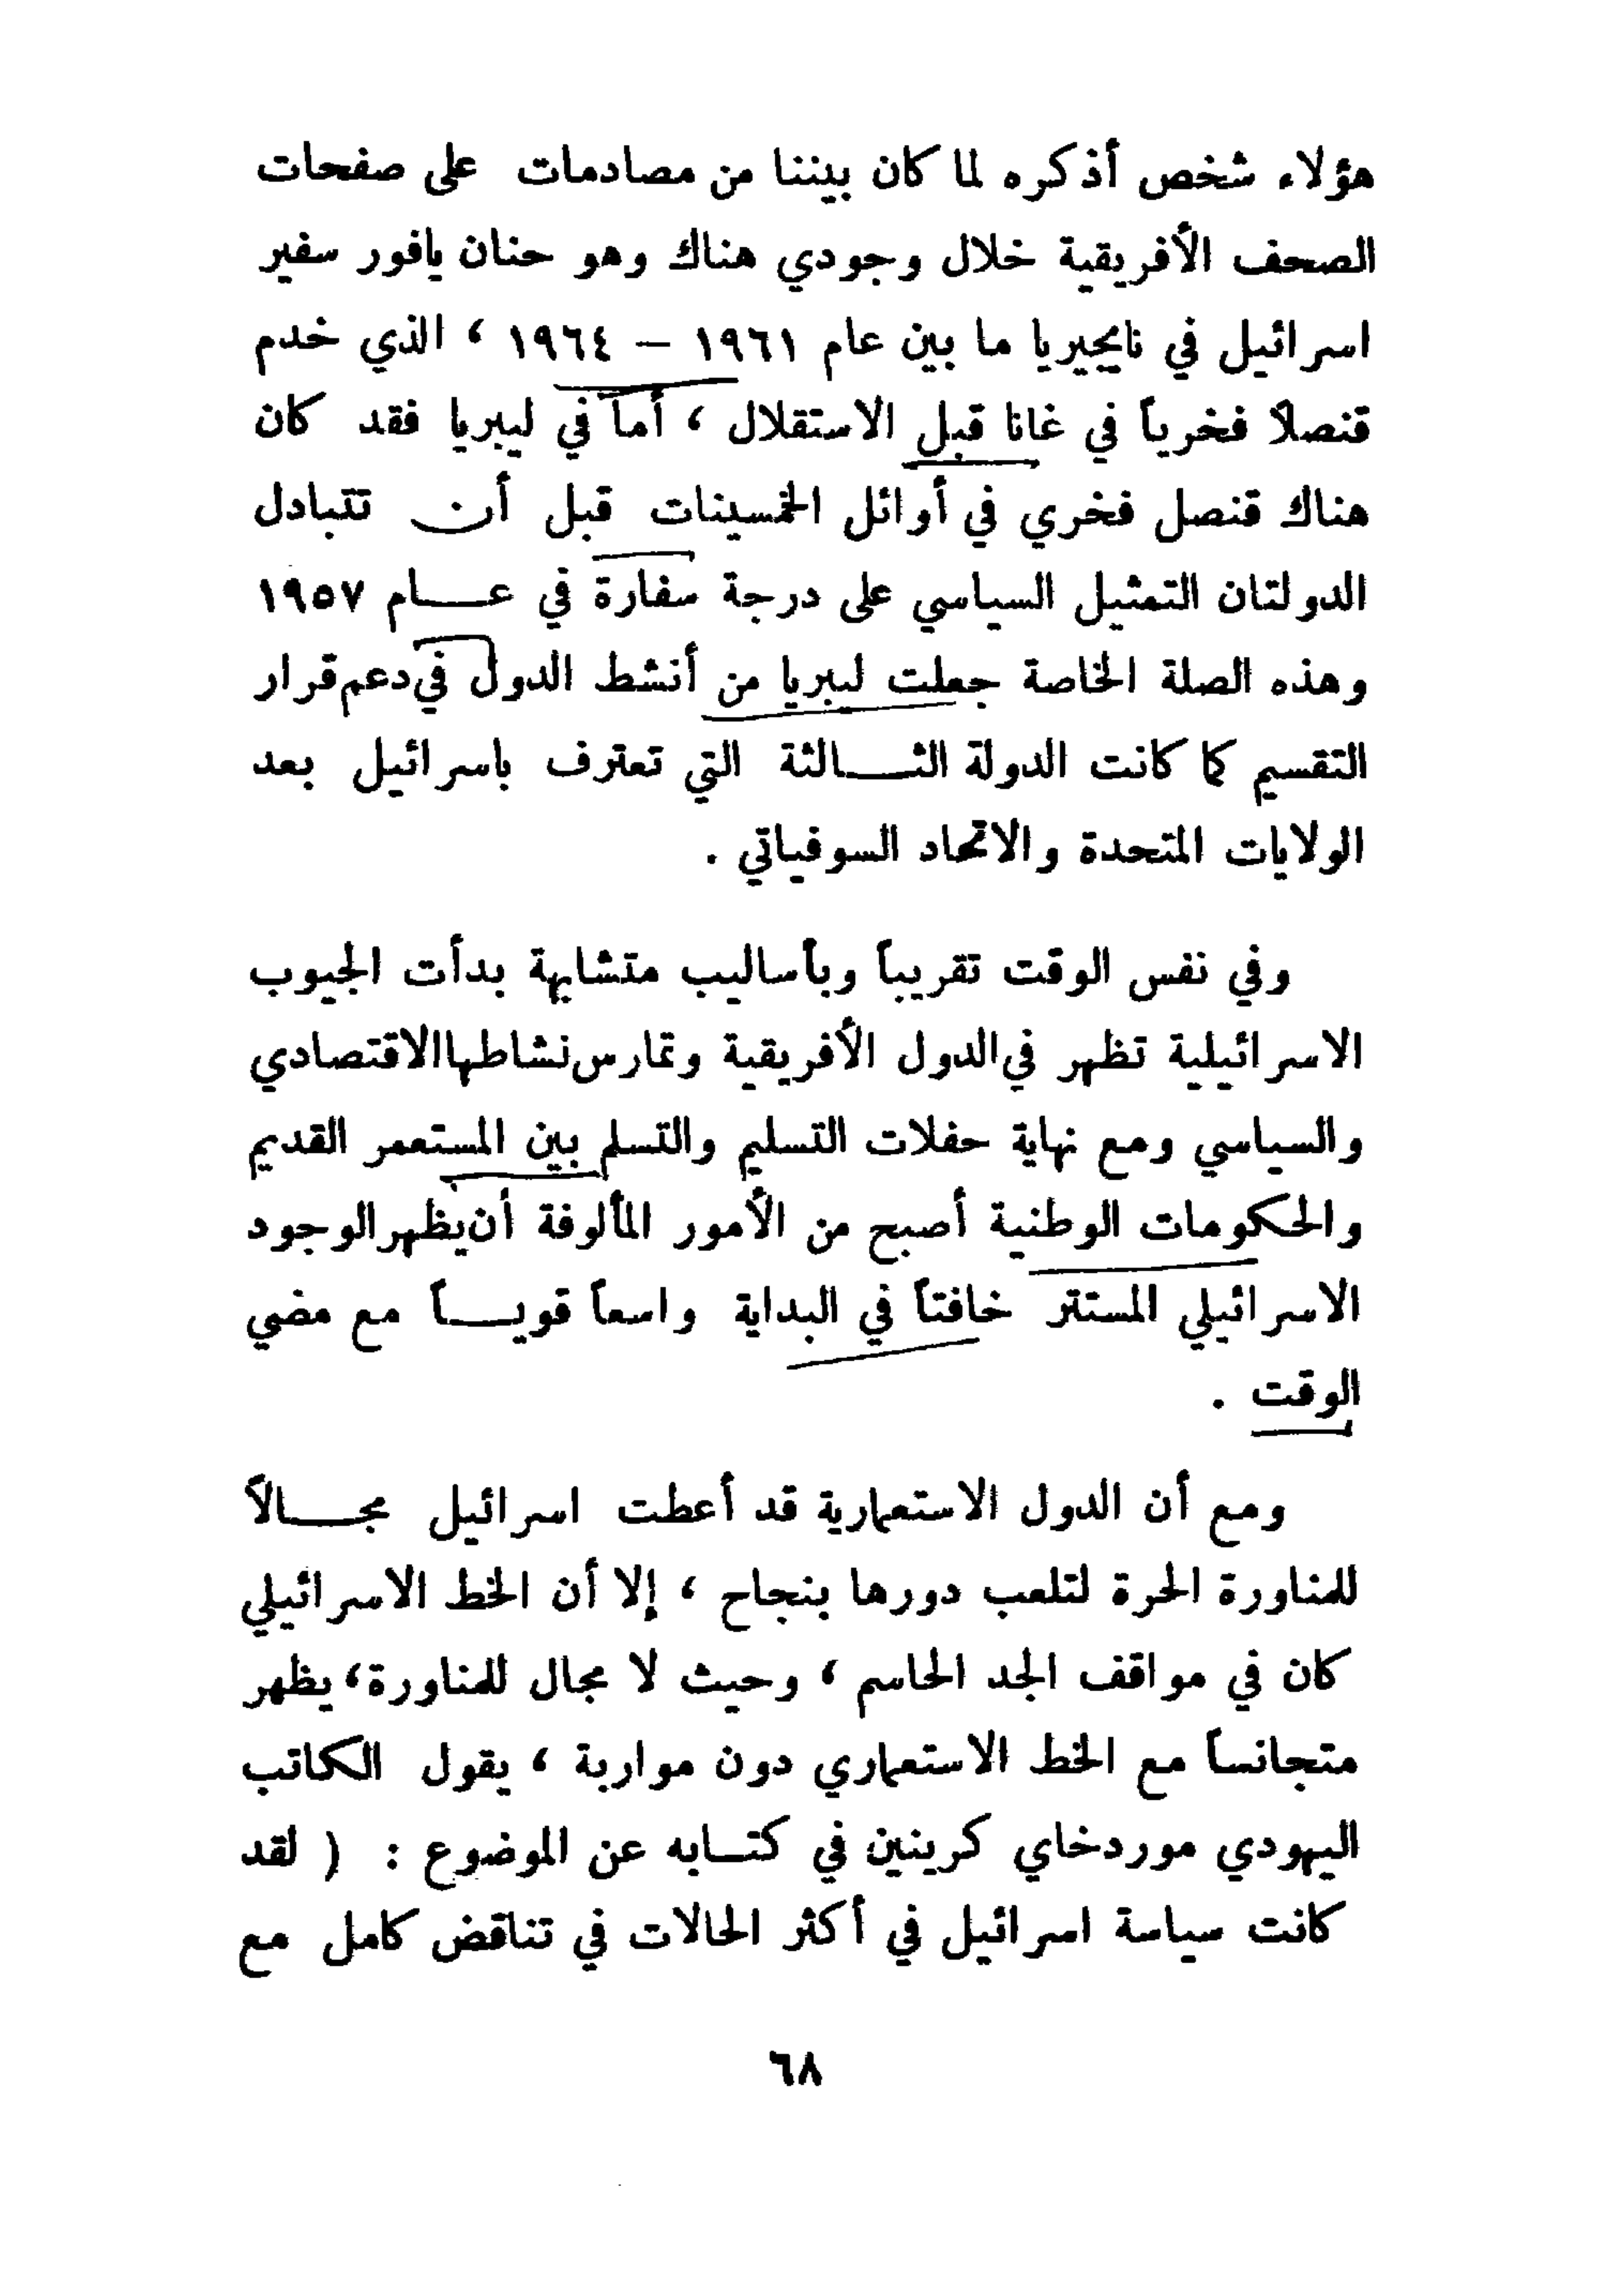 هؤلاء شخص أذكره لما كان بيننا من مصادمات على صفحات
الصحف الأفريقية خلال وجودي هناك وهو حنان يافور سفير
اسرائيل في نايجيريا ما بين عام ١٩٦١ – ١٩٦٤ ، الذي خدم
قنصلاً فخرياً في غانا قبل الاستقلال ، أما في ليبريا فقد كان
هناك قنصل فخري في أوائل الخمسينات قبل أن تتبادل
الدولتان التمثيل السياسي على درجة سفارة في عـــام ١٩٥٧
وهذه الصلة الخاصة جعلت ليبريا من أنشط الدول في دعم قرار
التقسيم كما كانت الدولة الثـــالثة التي تعترف باسرائيل بعد
الولايات المتحدة والاتحاد السوفياتي .
وفي نفس الوقت تقريباً وبأساليب متشابهة بدأت الجيوب
الاسرائيلية تظهر في الدول الأفريقية وتمارس نشاطها الاقتصادي
والسياسي ومع نهاية حفلات التسليم والتسلم بين المستعمر القديم
والحكومات الوطنية أصبح من الأمور المألوفة أن يظهر الوجود
الاسرائيلي المستتر خافتاً في البداية واسعاً قويـــاً مع مضي
الوقت .
ومع أن الدول الاستعمارية قد أعطت اسرائيل مجـــالاً
للمناورة الحرة لتلعب دورها بنجاح ، إلا أن الخط الاسرائيلي
كان في مواقف الجد الحاسم ، وحيث لا مجال للمناورة ، يظهر
متجانساً مع الخط الاستعماري دون مواربة ، يقول الكاتب
اليهودي موردخاي كرينين في كتـــابه عن الموضوع : ( لقد
كانت سياسة اسرائيل في أكثر الحالات في تناقض كامل مع
٦٨